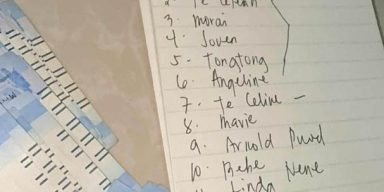 2. Te
3. Morai
4. Joven
5. Tongtong
6. Angeline
7. Te Celine -
8. Mavie
9. Arnold
10. Bebe Nene
Linda